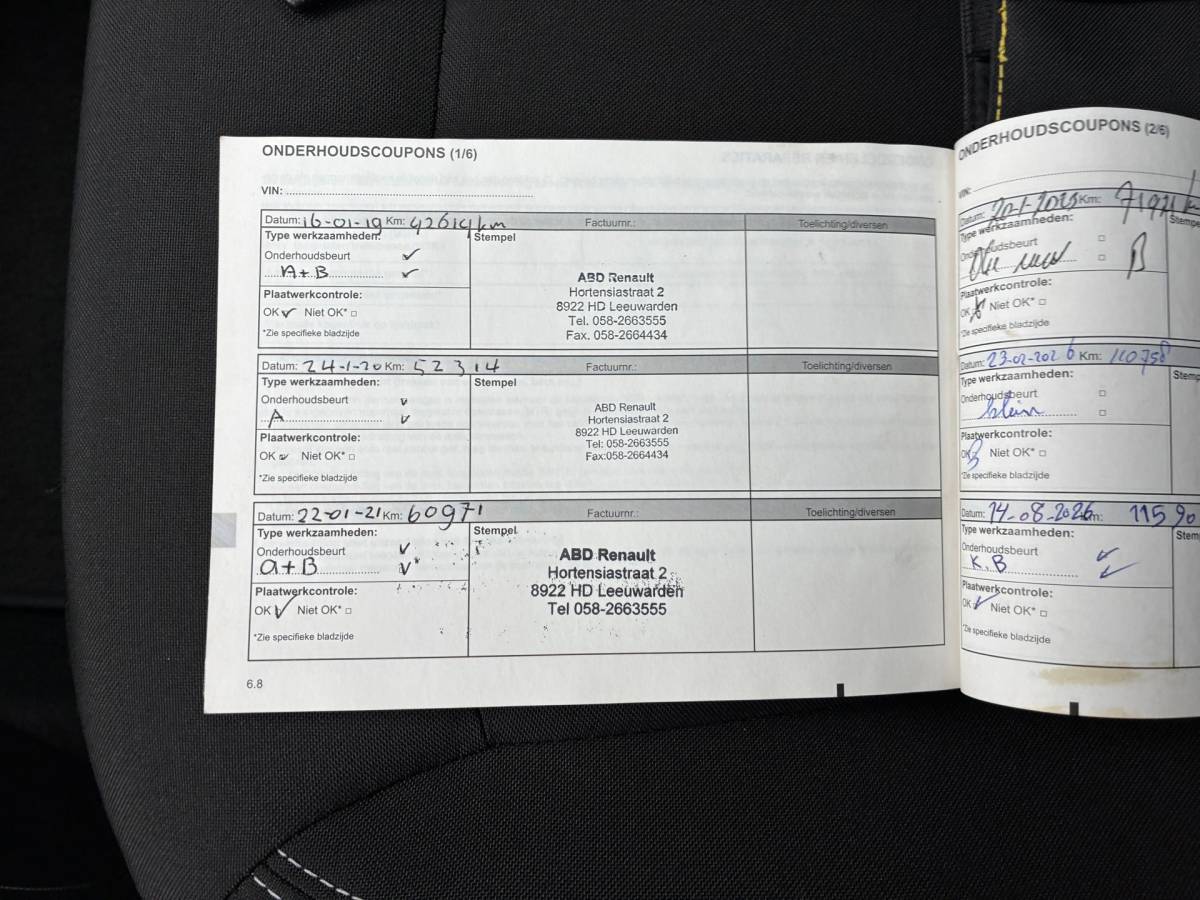 ONDERHOUDSCOUPONS (1/6)
VIN:
Datum: 16-01-19 Km: 42614 km Factuurnr.: Toelichting/diversen
Type werkzaamheden: Stempel
Onderhoudsbeurt
A+B
Plaatwerkcontrole:
OK Niet OK*
*Zie specifieke bladzijde
ABD Renault
Hortensiastraat 2
8922 HD Leeuwarden
Tel. 058-2663555
Fax. 058-2664434
Datum: 24-1-20 Km: 52314 Factuurnr.: Toelichting/diversen
Type werkzaamheden: Stempel
Onderhoudsbeurt
A
Plaatwerkcontrole:
OK Niet OK*
*Zie specifieke bladzijde
ABD Renault
Hortensiastraat 2
8922 HD Leeuwarden
Tel: 058-2663555
Fax:058-2664434
Datum: 22-01-21 Km: 60971 Factuurnr.: Toelichting/diversen
Type werkzaamheden: Stempel
Onderhoudsbeurt
a+B
Plaatwerkcontrole:
OK Niet OK*
*Zie specifieke bladzijde
ABD Renault
Hortensiastraat 2
8922 HD Leeuwarden
Tel 058-2663555
6.8
ONDERHOUDSCOUPONS (2/6)
VIN:
Datum: 20-1-2025 Km:
Type werkzaamheden: Stempe
Onderhoudsbeurt
B
Plaatwerkcontrole:
OK Niet OK*
*Zie specifieke bladzijde
Datum: 23-02-2026 Km: 110758
Type werkzaamheden: Stemp
Onderhoudsbeurt
klein
Plaatwerkcontrole:
OK Niet OK*
*Zie specifieke bladzijde
Datum: 14-08-2026 Km: 11590
Type werkzaamheden: Stem
Onderhoudsbeurt
K.B
Plaatwerkcontrole:
OK Niet OK*
*Zie specifieke bladzijde